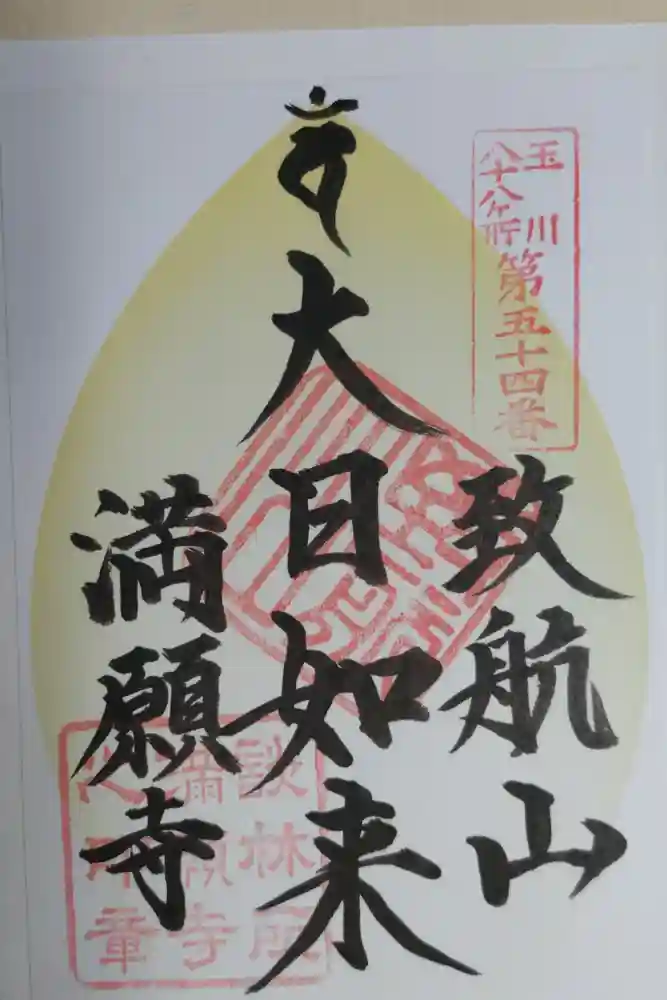 玉川
八十八ヶ所
第五十四番
致航山
大日如来
満願寺
談林所
満願寺
之印章